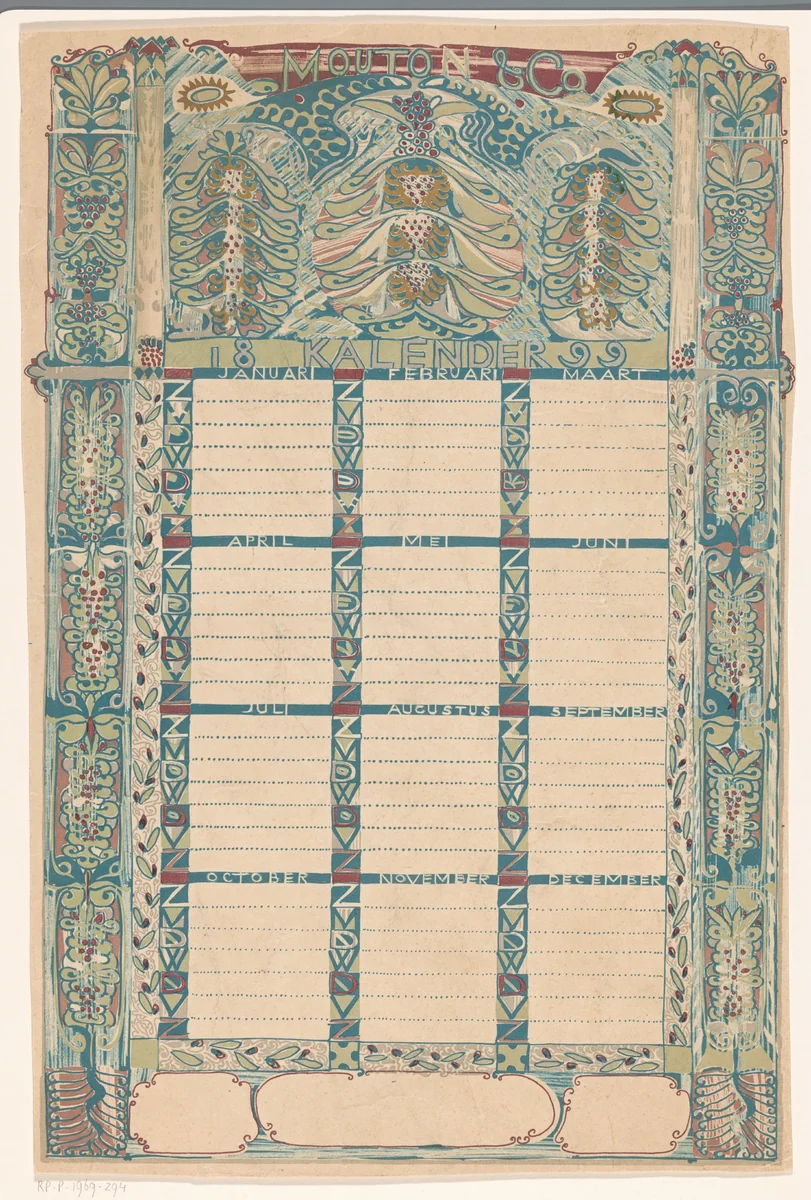 MOUTON & Co
18 KALENDER 99
JANUARI FEBRUARI MAART
Z Z Z
M M M
D D D
W W W
D D D
V V V
Z Z Z
APRIL MEI JUNI
Z Z Z
M M M
D D D
W W W
D D D
V V V
Z Z Z
JULI AUGUSTUS SEPTEMBER
Z Z Z
M M M
D D D
W W W
D D D
V V V
Z Z Z
OCTOBER NOVEMBER DECEMBER
Z Z Z
M M M
D D D
W W W
D D D
V V V
Z Z Z
RP-P-1969-294